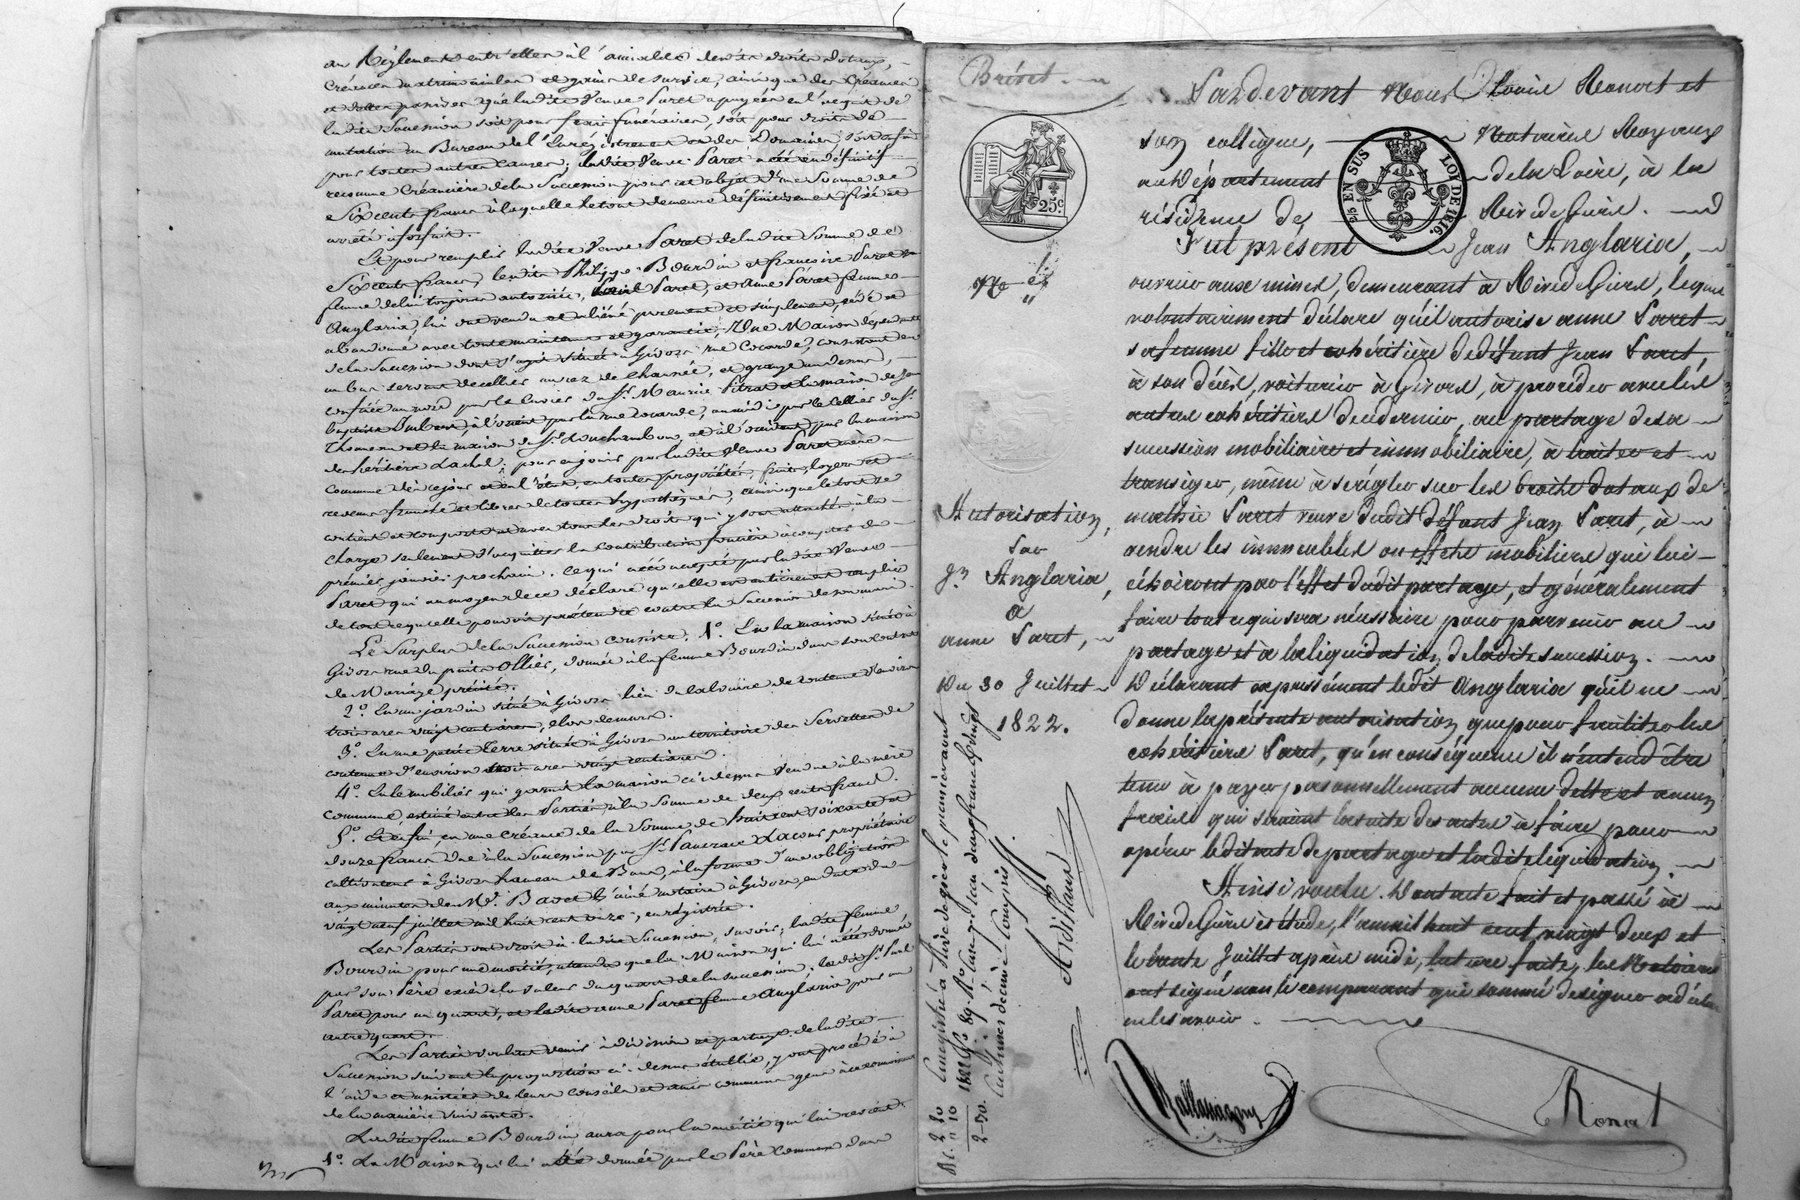 au Règlement entr'elles à l'amiable desdits droits dotaux,
créances matrimoniales et gains de survie, ainsi que des créances
et dettes passives que ladite veuve Paret a payées en l'acquit de
ladite succession soit pour frais funéraires, soit pour droits de
mutation au Bureau de l'Enregistrement et des Domaines, soit enfin
pour toutes autres causes; ladite veuve Paret a été en définitif
reconnue créancière de la succession pour cet objet d'une somme de
Six cents francs à laquelle le tout demeure définitivement fixé et
arrêté à forfait.
Et pour remplir ladite veuve Paret de ladite somme de
Six cents francs, lesdits Philippe Bourdin et françoise Paret sa
femme de lui toujours autorisée, Paret, et Anne Paret femme
Anglaria, lui ont vendu et aliéné purement et simplement, cédé et
abandonné avec toute maintenue et garantie, Une Maison dépendante
de la succession dont s'agit située à Givors rue Cocarde, consistant en
un bas servant de cellier au rez de chaussée, et grange au dessus,
confiné au nord par le cuvier du Sr. Maurice Pitrat et la maison de Jean
baptiste Imbert, à l'orient par la rue cocarde, au midi par le cellier du Sr.
Thomson et la maison du Sr. Souchambon, et à l'occident par la maison
des héritiers Lachal; pour en jouir par ladite veuve Paret mère
comme dès ce jour et en l'état, en toutes propriétés, fruits, loyers et
revenus franche et libre de toutes hypothèques, ainsi que le tout se
contient et comporte et avec tous les droits qui y sont attachés, à la
charge seulement d'acquitter la contribution foncière à compter du
premier janvier prochain. Ce qui a été accepté par ladite veuve
Paret qui au moyen de ce déclare qu'elle est entièrement remplie
de tout ce qu'elle pouvoit prétendre contre la succession de son mari.
Le Surplus de la Succession consiste, 1º. En la maison située à
Givors rue du puits Ollier, donnée à la femme Bourdin dans son contrat
de Mariage précité.
2º. En un jardin situé à Givors lieu de la Loire de contenue d'environ
trois ares vingt centiares,
3º. En une petite terre située à Givors au territoire des Servettes de
contenue d'environ trois ares vingt centiares.
4º. En le mobilier qui garnit la maison ci-dessus vendue à la mère
commune, estimé entre les Parties à la somme de deux cents francs.
5º. Et enfin, en une créance de la somme de huit cent soixante et
douze francs due à la succession par Sr. Pancrace Lacour propriétaire
cultivateur à Givors hameau de Bans, à la forme d'une obligation
aux minutes de Me. Bavet l'aîné notaire à Givors, en date du
vingt neuf juillet mil huit cent onze, enregistrée.
Les Parties ont droit à ladite Succession, savoir; ladite femme
Bourdin pour une moitié, attendu que la Maison qui lui a été donnée
par son Père excède la valeur du quart de la succession; ledit Sr. Paul
Paret pour un quart, et ladite anne Paret femme Anglaria pour un
autre quart.
Les Parties voulant venir à division et partage de ladite
Succession suivant la proportion ci-dessus établie, y ont procédé à
l'aide et assistées de leurs conseils et amis communs gens à ce connoissant
de la manière suivante.
Ladite femme Bourdin aura pour la moitié qui lui revient
1º. La Maison qui lui a été donnée par le Père commun dans
Brevet.
25 c.
Autorisation,
Par
Jn Anglaria,
à
anne Paret,
Du 30 Juillet
1822.
Enregistré à Rive de gier le premier aout
1822 fo. 89 Ro. Case
centimes decime compris
Ardithand
2 20
10
2-30.
Pardevant Nous Louis Ronat et
son collègue, Notaires Royaux
au Département de la Loire, à la
résidence de Rive de Gier.
EN SUS LOI DE 1816.
Fut présent Jean Anglaria,
ouvrier aux mines, demeurant à Rive de Gier, lequel
volontairement déclare qu'il autorise anne Paret
sa femme fille et cohéritière de défunt Jean Paret,
à son décès, voiturier à Givors, à procéder avec les
autres cohéritiers de ce dernier, au partage de sa
succession mobiliaire et immobiliaire, à traiter et
transiger, même à se régler sur les droits dotaux de
mathie Paret veuve dudit défunt Jean Paret, à
vendre les immeubles ou effets mobiliers qui lui
échoiront par l'effet dudit partage, et généralement
faire tout ce qui sera nécessaire pour parvenir au
partage et à la liquidation de ladite succession.
Déclarant expressément ledit Anglaria qu'il ne
donne la présente autorisation que pour faciliter les
cohéritiers Paret, qu'en conséquence il n'entend être
tenu à payer personnellement aucune dette et aucuns
fraix qui seroient la suite des actes à faire pour
opérer ledit acte de partage et ladite liquidation.
Ainsi voulu. Dont acte fait et passé à
Rive de Gier et étude, l'an mil huit cent vingt deux et
le trente Juillet après midi, lecture faite, les Notaires
ont signé non le comparant qui sommé de signer a déclaré
ne les avoir.
Ronat